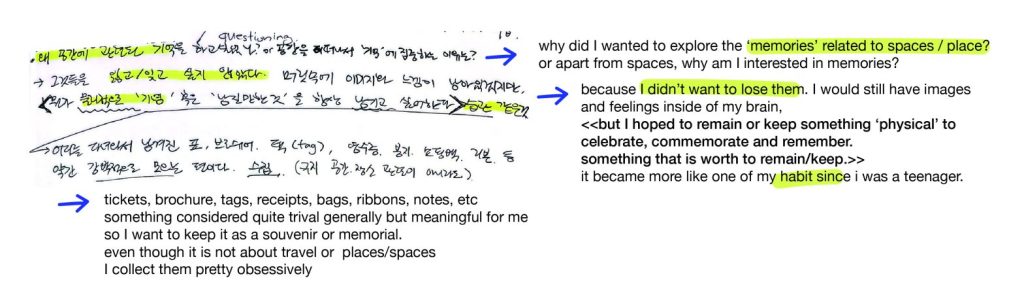 questioning.
왜 공간에 관련된 '기억'을 하고 싶었나? or 공간을 떠나서 '기억'에 집중하는 이유는?
→ 그것들을 잃고/잊고 싶지 않았다. 머릿속에 이미지와 느낌이 남아있겠지만,
물리적으로 '기념' 혹은 '남길만한 것'을 항상 남기고 싶어한다 습관 같은
→ 여행을 다녀와서 남겨진 표, 브로셔, 택(tag), 영수증, 봉지, 쇼핑백, 리본 등
약간 강박적으로 모으는 편이다. 수집 (굳이 공간 장소 관련이 아니라도)
why did I wanted to explore the 'memories' related to spaces / place?
or apart from spaces, why am I interested in memories?
because I didn't want to lose them. I would still have images
and feelings inside of my brain,
<<but I hoped to remain or keep something 'physical' to
celebrate, commemorate and remember.
something that is worth to remain/keep.>>
it became more like one of my habit since i was a teenager.
tickets, brochure, tags, receipts, bags, ribbons, notes, etc
something considered quite trival generally but meaningful for me
so I want to keep it as a souvenir or memorial.
even though it is not about travel or places/spaces
I collect them pretty obsessively